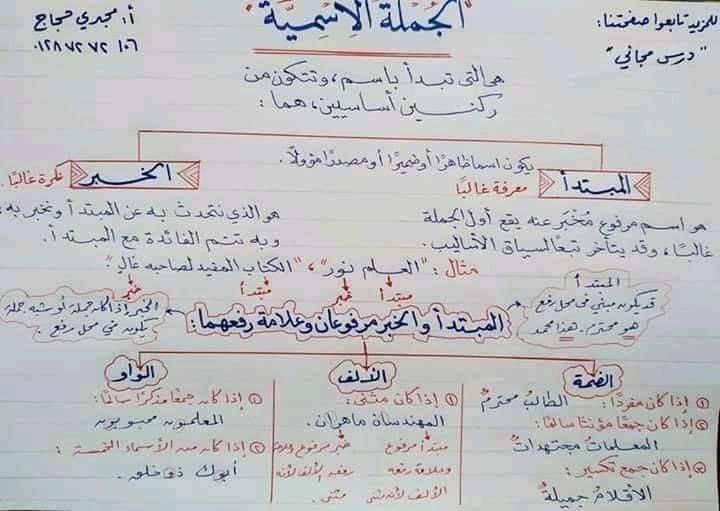 للمزيد تابعوا صفحتنا:
"درس مجاني"
"الجُملة الإسمية"
أ: مجدي حجاج
٠١٢٨٧٢٧٢١٠٦
هي التى تبدأ باسم، وتتكون من
ركنين أساسيين، هما:
يكون اسما ظاهرًا أو ضميرًا أو مصدرًا مؤولًا.
المبتدأ
معرفة غالبًا
هو اسم مرفوع مُخْبَر عنه يقع أول الجملة
غالبًا، وقد يتأخر تبعًا لسياق الأساليب.
الخبر
نكرة غالبًا.
هو الذي نتحدث به عن المبتدأ ونخبر به،
وبه تتم الفائدة مع المبتدأ.
مثال: "العلم نور"، "الكتاب المفيد لصاحبه غالٍ".
مبتدأ خبر مبتدأ خبر
المبتدأ
قد يكون مبني في محل رفع
هو محترم. هذا محمد
المبتدأ والخبر مرفوعان وعلامة رفعهما:
الخبر إذا كان جملة أو شبه جملة
يكون في محل رفع
الضمة
١ إذا كان مفردًا: الطالبُ محترمٌ
٢ إذا كان جمعًا مؤنثا سالمًا:
المعلماتُ مجتهداتٌ
٣ إذا كان جمع تكسير:
الأقلامُ جميلةٌ
الألف
١ إذا كان مثنى:
المهندسان ماهران.
مبتدأ مرفوع
وعلامة رفعه
الألف لأنه مثنى
خبر مرفوع وعلامة
رفعه الألف لأنه
مثنى.
الواو
١ إذا كان جمعًا مذكرًا سالمًا:
المعلمون محبوبون
٢ إذا كان من الأسماء الخمسة:
أبوك ذو خلق.